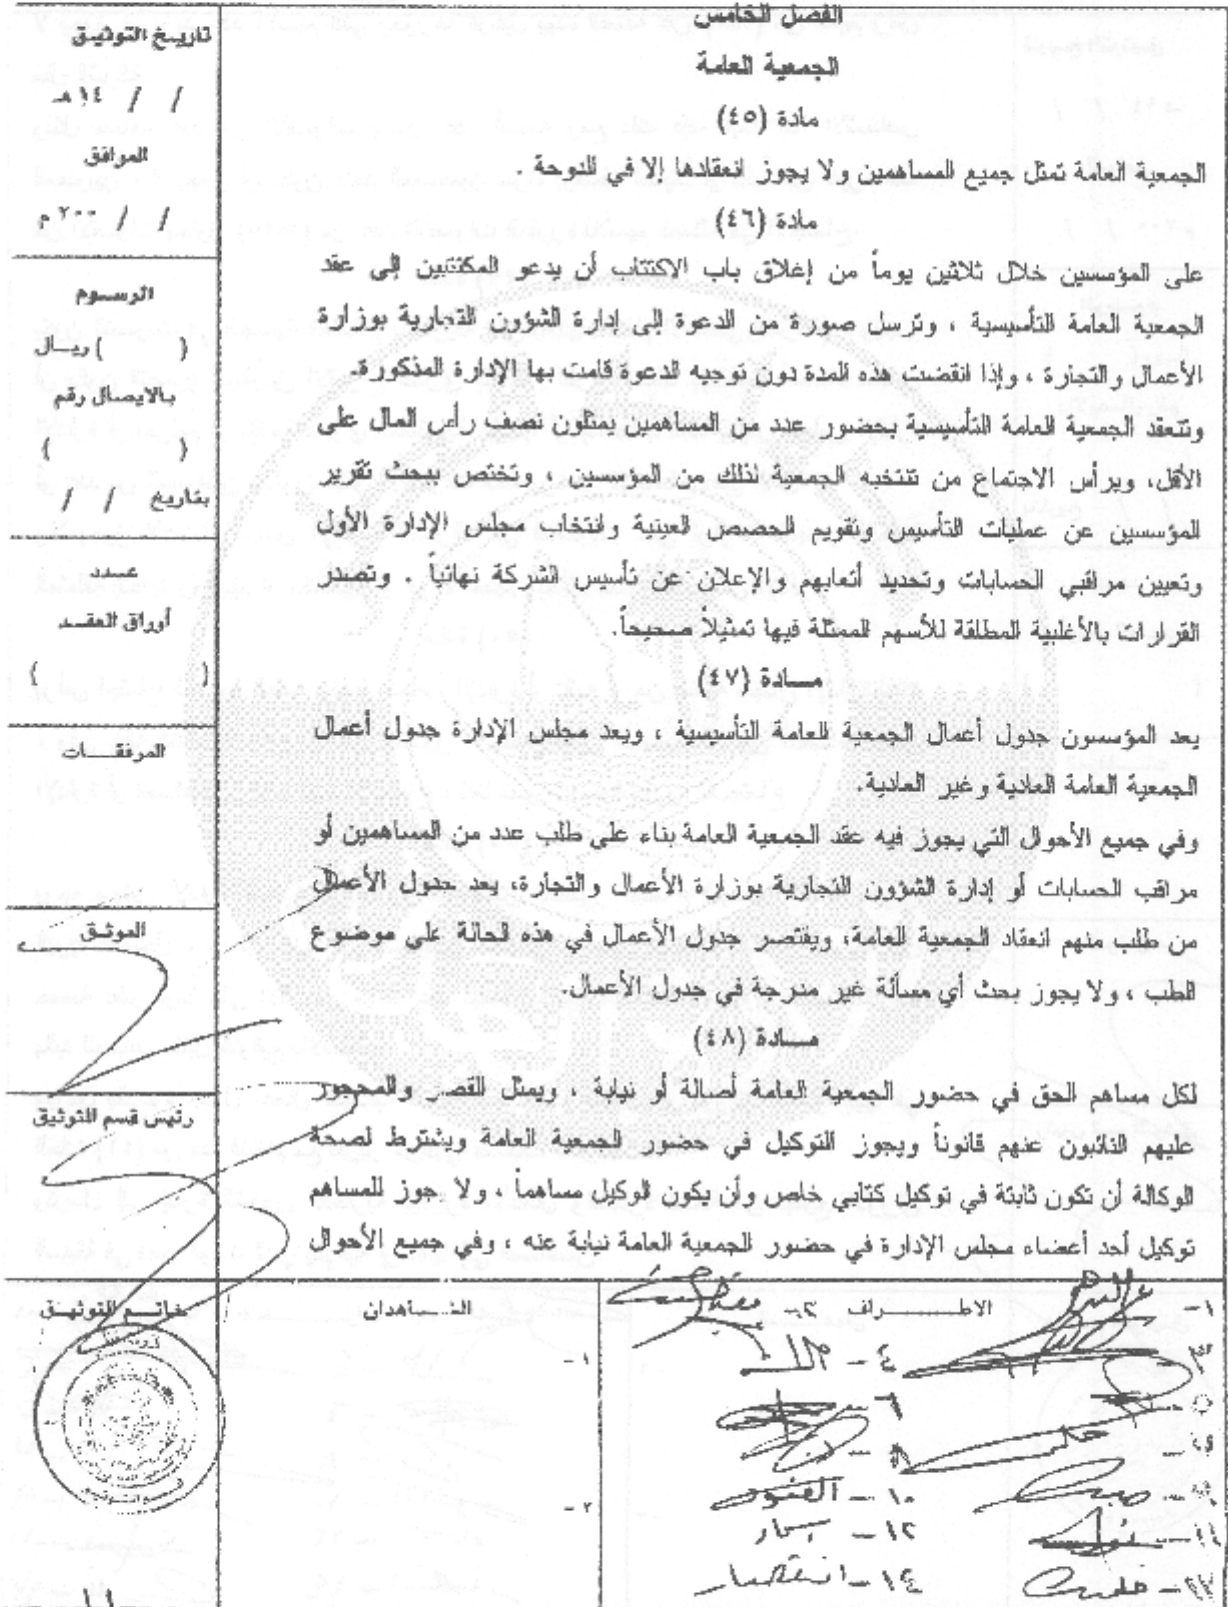 الفصل الخامس
الجمعية العامة
مادة (٤٥)
الجمعية العامة تمثل جميع المساهمين ولا يجوز انعقادها إلا في الدوحة .
مادة (٤٦)
على المؤسسين خلال ثلاثين يوماً من إغلاق باب الاكتتاب أن يدعو المكتتبين إلى عقد
الجمعية العامة التأسيسية ، وترسل صورة من الدعوة إلى إدارة الشؤون التجارية بوزارة
الأعمال والتجارة ، وإذا انقضت هذه المدة دون توجيه الدعوة قامت بها الإدارة المذكورة.
وتنعقد الجمعية العامة التأسيسية بحضور عدد من المساهمين يمثلون نصف رأس المال على
الأقل، ويرأس الاجتماع من تنتخبه الجمعية لذلك من المؤسسين ، وتختص ببحث تقرير
المؤسسين عن عمليات التأسيس وتقويم الحصص العينية وانتخاب مجلس الإدارة الأول
وتعيين مراقبي الحسابات وتحديد أتعابهم والإعلان عن تأسيس الشركة نهائياً . وتصدر
القرارات بالأغلبية المطلقة للأسهم الممثلة فيها تمثيلاً صحيحاً.
مـــادة (٤٧)
يعد المؤسسون جدول أعمال الجمعية العامة التأسيسية ، ويعد مجلس الإدارة جدول أعمال
الجمعية العامة العادية وغير العادية.
وفي جميع الأحوال التي يجوز فيه عقد الجمعية العامة بناء على طلب عدد من المساهمين أو
مراقب الحسابات أو إدارة الشؤون التجارية بوزارة الأعمال والتجارة، يعد جدول الأعمال
من طلب منهم انعقاد الجمعية العامة، ويقتصر جدول الأعمال في هذه الحالة على موضوع
الطلب ، ولا يجوز بحث أي مسألة غير مدرجة في جدول الأعمال.
مـــادة (٤٨)
لكل مساهم الحق في حضور الجمعية العامة أصالة أو نيابة ، ويمثل القصر والمحجور
عليهم النائبون عنهم قانوناً ويجوز التوكيل في حضور الجمعية العامة ويشترط لصحة
الوكالة أن تكون ثابتة في توكيل كتابي خاص وأن يكون الوكيل مساهماً ، ولا يجوز للمساهم
توكيل أحد أعضاء مجلس الإدارة في حضور الجمعية العامة نيابة عنه ، وفي جميع الأحوال
تاريخ التوثيق
/ / ١٤هـ
الموافق
/ / ٢٠٠م
الرســوم
( ) ريــال
بالايصال رقم
( )
بتاريخ / /
عــدد
أوراق العقــد
( )
المرفقــــات
الموثــق
رئيس قسم التوثيق
١-
الاطـــــــراف
٢-
٤ -
٦ -
٨ -
١٠ -
١٢ -
١٤ -
الشـــاهدان
١ -
٢ -
خاتــم التوثيــق